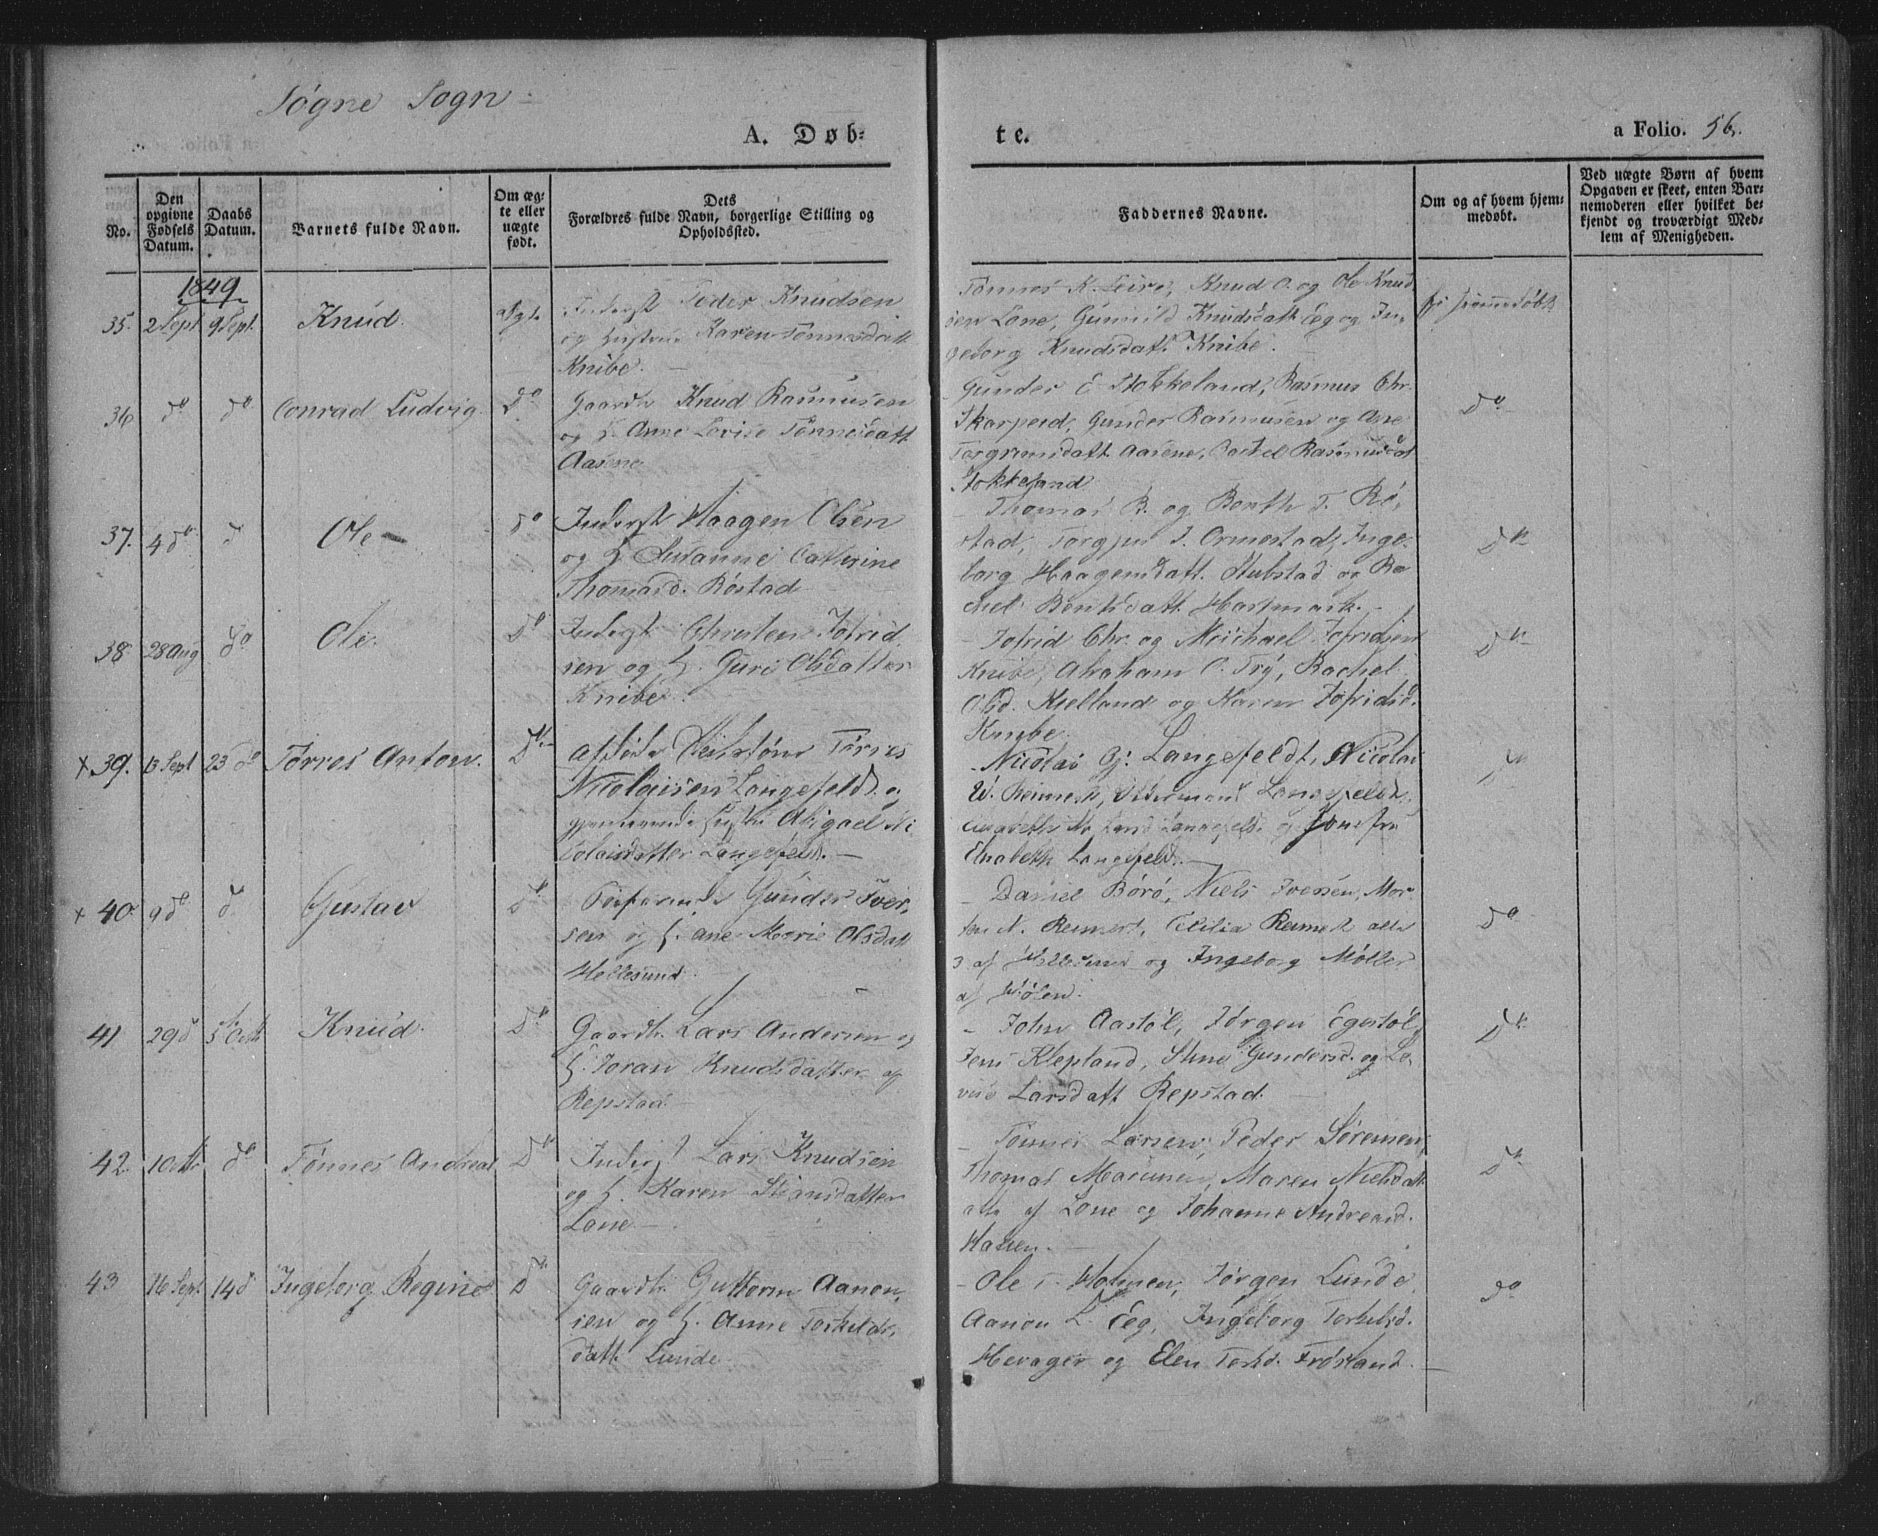 Søgne Sogn
A. Døb-
te.
a Folio. 56.
No.
Den opgivne Fødsels Datum.
Daabs Datum.
Barnets fulde Navn.
Om ægte eller uægte født.
Dets
Forældres fulde Navn, borgerlige Stilling og
Opholdssted.
Faddernes Navne.
Om og af hvem hjem-
medøbt.
Ved uægte Børn af hvem
Opgaven er skeet, enten Bar-
nemoderen eller hvilket be-
kjendt og troværdigt Med-
lem af Menigheden.
1849
35. 2 Sept 9 Sept. Knud. Ægte
Inderst Peder Knudsen
og Hustrue Karen Tønnesdatt
Knibe.
Tønnes K. Leire, Knud O. og Ole Knud
sen Lone, Gunnild Knudsdatt Eeg og In-
geborg Knudsdatt Knibe.
hjemmedøbt
36 do do Conrad Ludvig do
Gaardbr Knud Rasmusen
og H. Anne Lovise Tønnesdatt
Aasene
Gunder E Stokkeland, Rasmus Chr.
Skarpeid, Gunder Rasmusen og Ane
Torgrimsdatt Aasene, Rasmusdat
Stokkeland
do
37. 4 do d Ole do
Inderst Haagen Olsen
og H Susanne Cathrine
Thomasd. Røstad
Thomas B. og Benth T. Rø-
stad, Torgjus J. Ormestad, Inge-
borg Haagensdatt. Stubstad og Ra-
chel Bentsdatt Hortmark.
do
38 28 Aug do Ole. do
Inderst Christen Jofrid
sen og H. Guri Olsdatter
Knibe.
Jofrid Chr. og Michael Jofridsen
Knibe, Abraham O. Try, Rachel
Olsd. Kielland og Karen Jofridsd.
Knibe
do
x 39. 13 Sept 23 do Torres Anton. do
Afdøde Tørres
Nicolaisen Langefeldt og
gjenlevende Hustru Abigael Ni
colaisdatter Langefeldt.
Nicolai G. Langefeldt, Nicolai
W. Reimert, Langefeldt,
Langefeldt og Jomfru
Elisabeth Langefeldt.
do
x 40. 9 d d Gustav do
Gunder Iver-
sen og H. Ane Marie Olsdatt
Hellesund.
Daniel Børø, Niels Iversen, Mor-
ten N. Reimert, Cecilia Reimert alle
3 af Hellesund og Ingeborg Møller
af
do
41 29 d 5 Octb Knud do
Gaardbr. Lars Andersen og
H. Joran Knudsdatter af
Repstad
John Aastøl, Jørgen Egestøl,
Jens Klepland, Stine Gundersd. og Lo-
vise Larsdatt Repstad.
do
42. 1 Octb do Tønnes Andreas do
Inderst Lars Knudsen
og H. Karen Stiansdatter
Lone
Tønnes Larsen, Peder Sørensen,
Thomas Mareniusen, Maren Nielsdatt
alle af Lone og Johanne Andreasd.
do
43 16 Sept 14 d Ingeborg Regine do
Gaardbr Guttorm Aanon-
sen og H. Anne Torkilds-
datt Lunde
Ole i Holmen, Jørgen Lunde,
Aanon L. Eeg, Ingeborg Torkildsd.
Hevager og Elen Torkd. Frøsland.
do